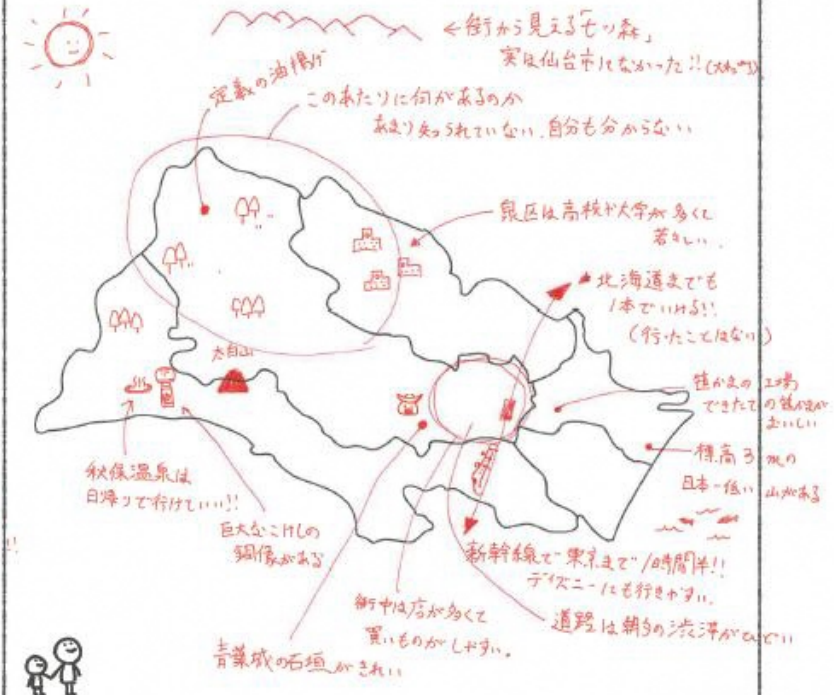 ←街から見える「七ツ森」
実は仙台市じゃなかった!!
定義の油揚げ
このあたりに何があるのか
あまり知られていない.自分も分からない
泉区は高校や大学が多くて
若々しい.
北海道までも
1本でいける!!
(行ったことはない)
太白山
笹かまの工場
できたての笹かまが
おいしい
標高3mの
日本一低い山がある
秋保温泉は
日帰りで行けていい!!
巨大なこけしの
銅像がある
新幹線で東京まで1時間半!!
ディズニーにも行きやすい.
街中は店が多くて
買いものがしやすい。
道路は朝夕の渋滞がひどい
青葉城の石垣がきれい
!!